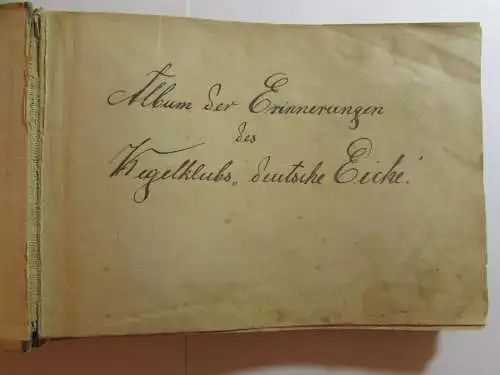 Album der Erinnerungen
des
Kegelklubs „deutsche Eiche."